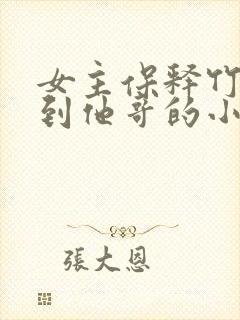 女主保释竹
到他哥的小
張大恩